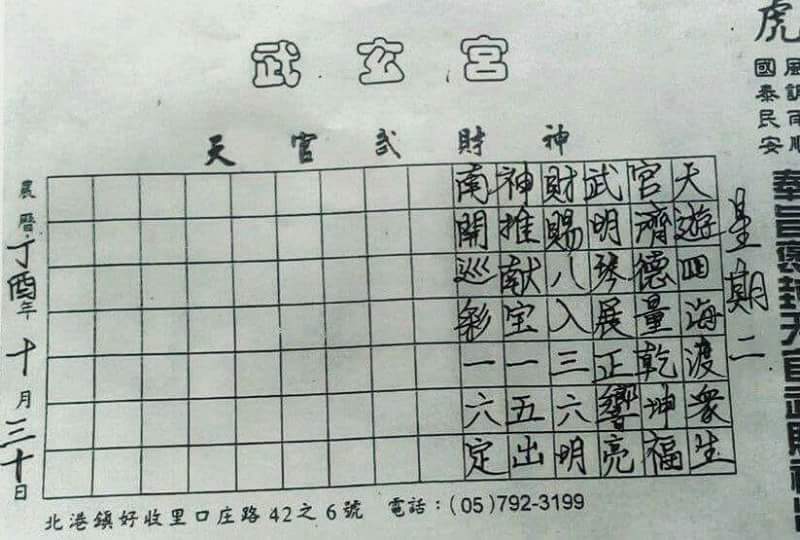 武玄宮
天官武財神
天遊四海渡衆生
官濟德量乾坤福
武明琴展正響亮
財賜八入三六明
神推献宝一五出
南開巡彩一六定
星期二
農曆丁酉年十月三十日
北港鎮好收里口庄路42之6號 電話:(05)792-3199
虎
風調雨順
國泰民安